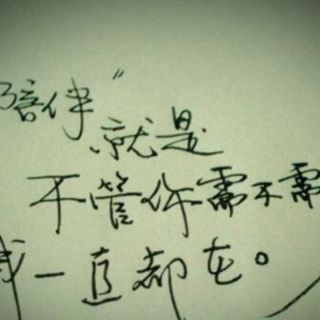 陪伴”
就是
不管你需不需
我一直都在。